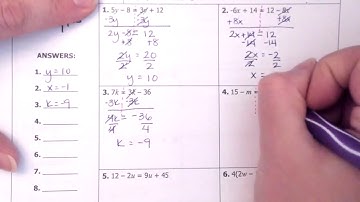 ANSWERS:
1. y = 10
2. x = -1
3. K = -9
4.
5.
6.
7.
8.
1. 5y - 8 = 3y + 12
-3y -3y
2y - 8 = 12
+8 +8
2y = 20
2 2
y = 10
2. -6x + 14 = 12 - 8x
+8x +8x
2x + 14 = 12
-14 -14
2x = -2
2 2
x =
3. 7k = 3k - 36
-3K -3K
4K = -36
4 4
K = -9
4. 15 - m =
5. 12 - 2u = 9u + 45
6. 4(2w -